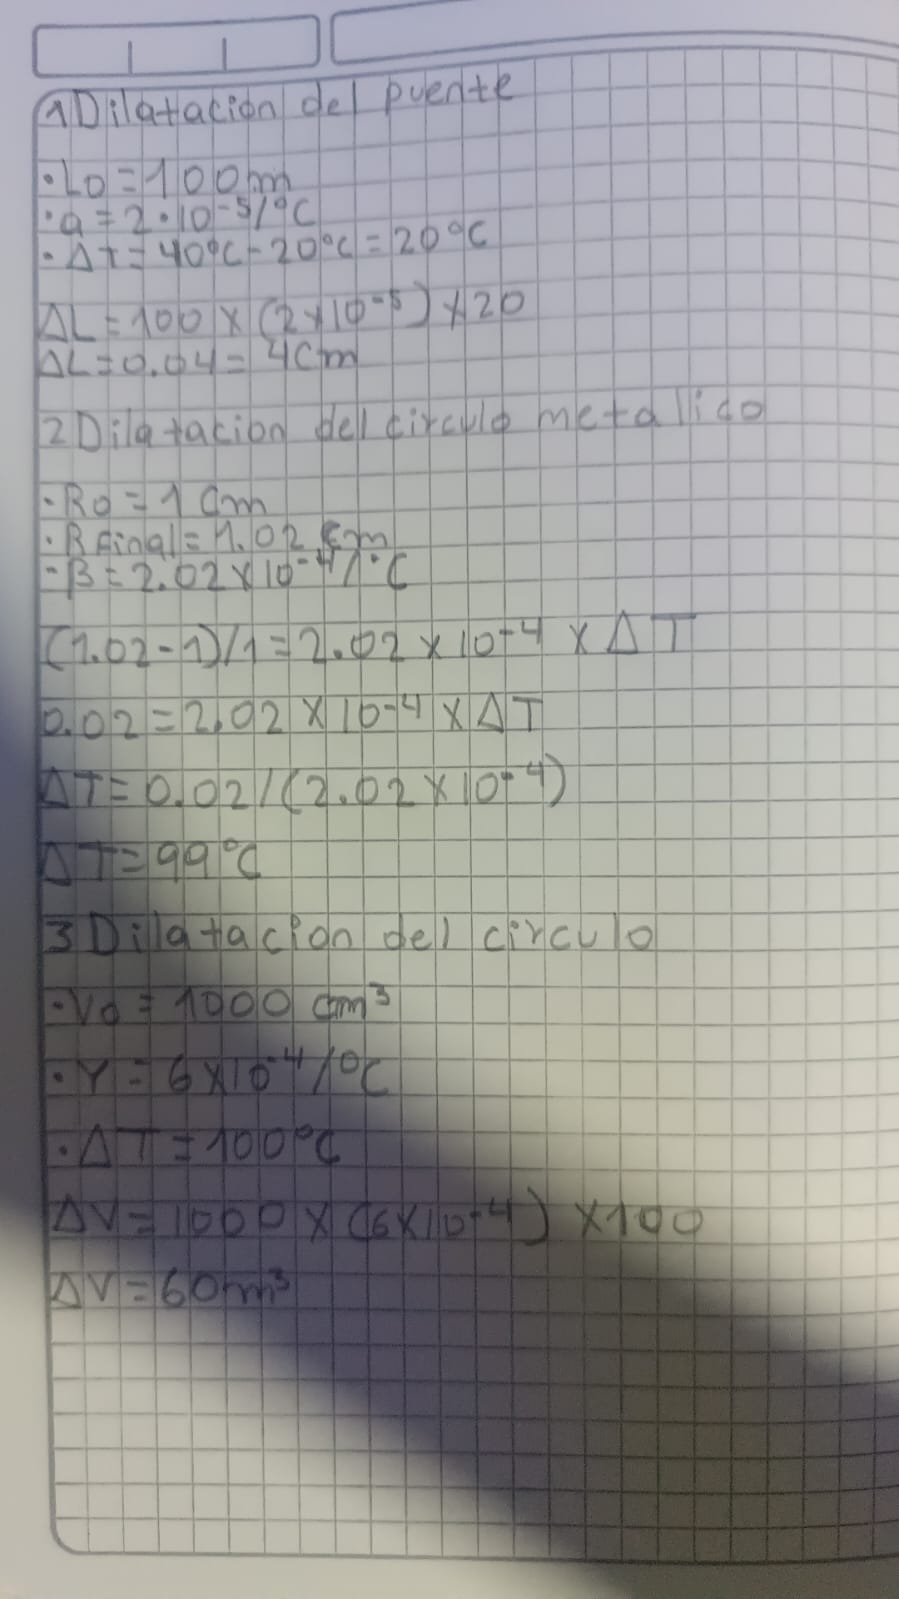 1 Dilatacion del puente
·Lo=100m
·a=2·10-5/°C
·ΔT=40°C-20°C=20°C
ΔL=100×(2×10-5)×20
ΔL=0.04=4cm
2 Dilatacion del circulo metalico
·Ro=1cm
·Rfinal=1.02 cm
-β=2.02×10-4/°C
(1.02-1)/1=2.02×10-4×ΔT
0.02=2.02×10-4×ΔT
ΔT=0.02/(2.02×10-4)
ΔT=99°C
3 Dilatacion del circulo
·Vo=1000cm³
·Y=6×10-4/°C
·ΔT=100°C
ΔV=1000×(6×10-4)×100
ΔV=60m³